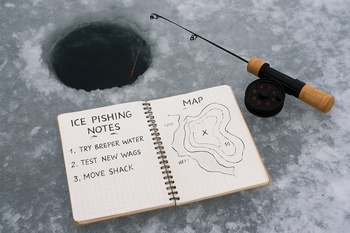 ICE PISHING
NOTES
1. TRY BREPER WATER
2. TEST NEW WAGS
3. MOVE SHACK
MAP
X